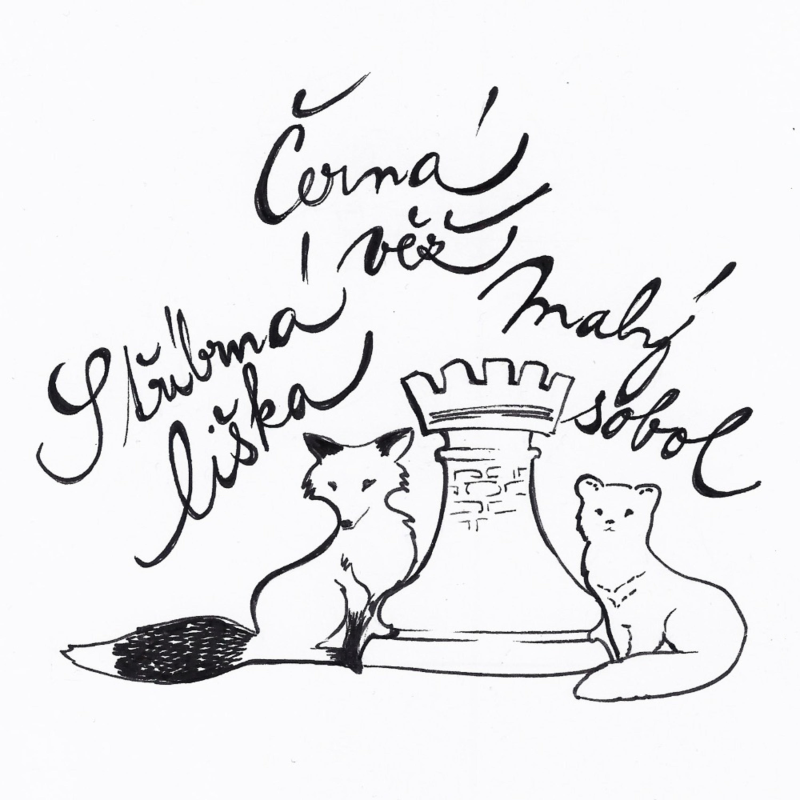 Černá
věž
Stříbrná
liška
Malý
sobol